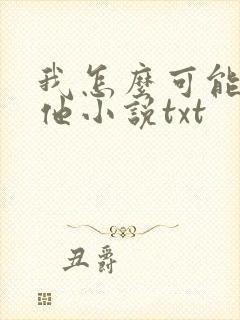 我怎麼可能
他小說txt
丑爵